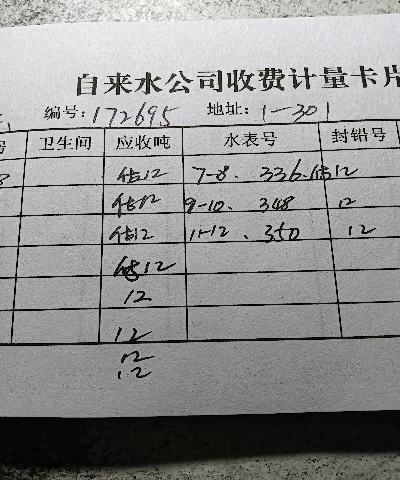 自来水公司收费计量卡片
编号:172695 地址:1-301
卫生间 应收吨 水表号 封铅号
估12 7-8. 336. 估12
估12 9-10. 348 12
估12 11-12. 350 12
估12
12
12
12
12